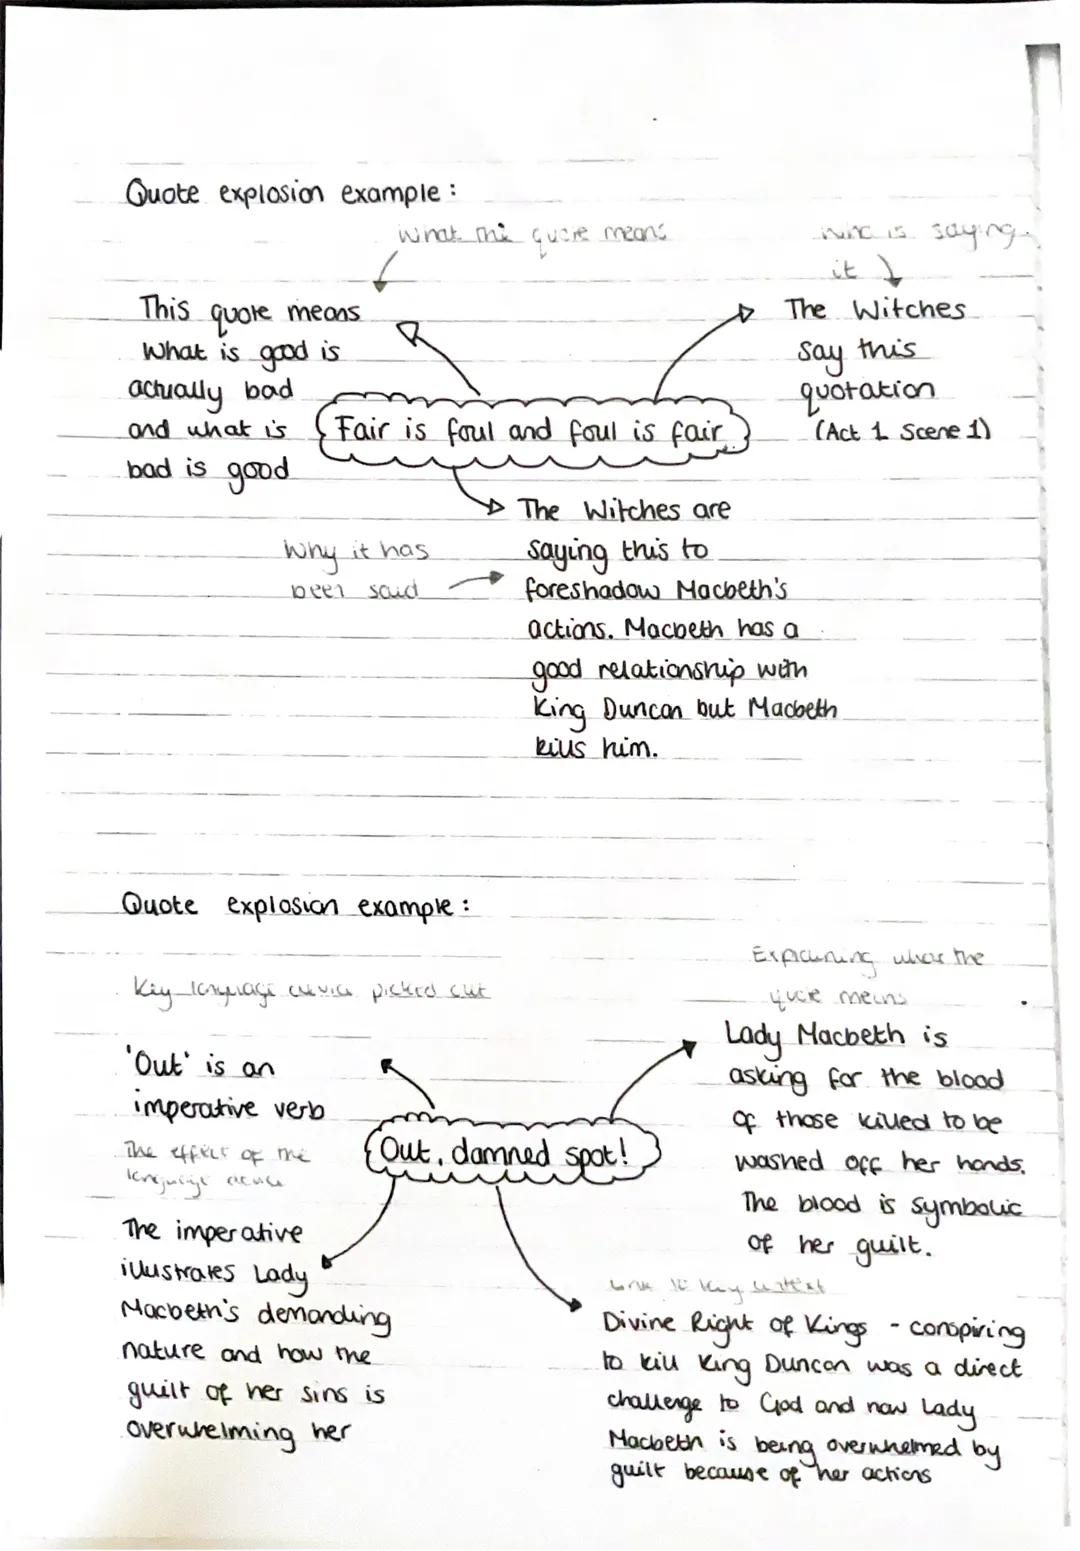 Quote explosion example:
What the quote means
who is saying
it
This quote means
What is good is
actually bad
and what is
bad is good
The Witches
say this
quotation
(Act 1 Scene 1)
Fair is foul and foul is fair
Why it has
been said
The Witches are
saying this to
foreshadow Macbeth's
actions. Macbeth has a
good relationship with
King Duncan but Macbeth
kills him.
Quote explosion example:
Key language device picked out
Explaining what the
quote means
'Out' is an
imperative verb
Lady Macbeth is
asking for the blood
of those killed to be
washed off her hands.
The blood is symbolic
of her guilt.
Out, damned spot!
The effect of the
language device
The imperative
illustrates Lady
Macbeth's demanding
nature and how the
guilt of her sins is
overwhelming her
Link to key context
Divine Right of Kings - conspiring
to kill King Duncan was a direct
challenge to God and now Lady
Macbeth is being overwhelmed by
guilt because of her actions